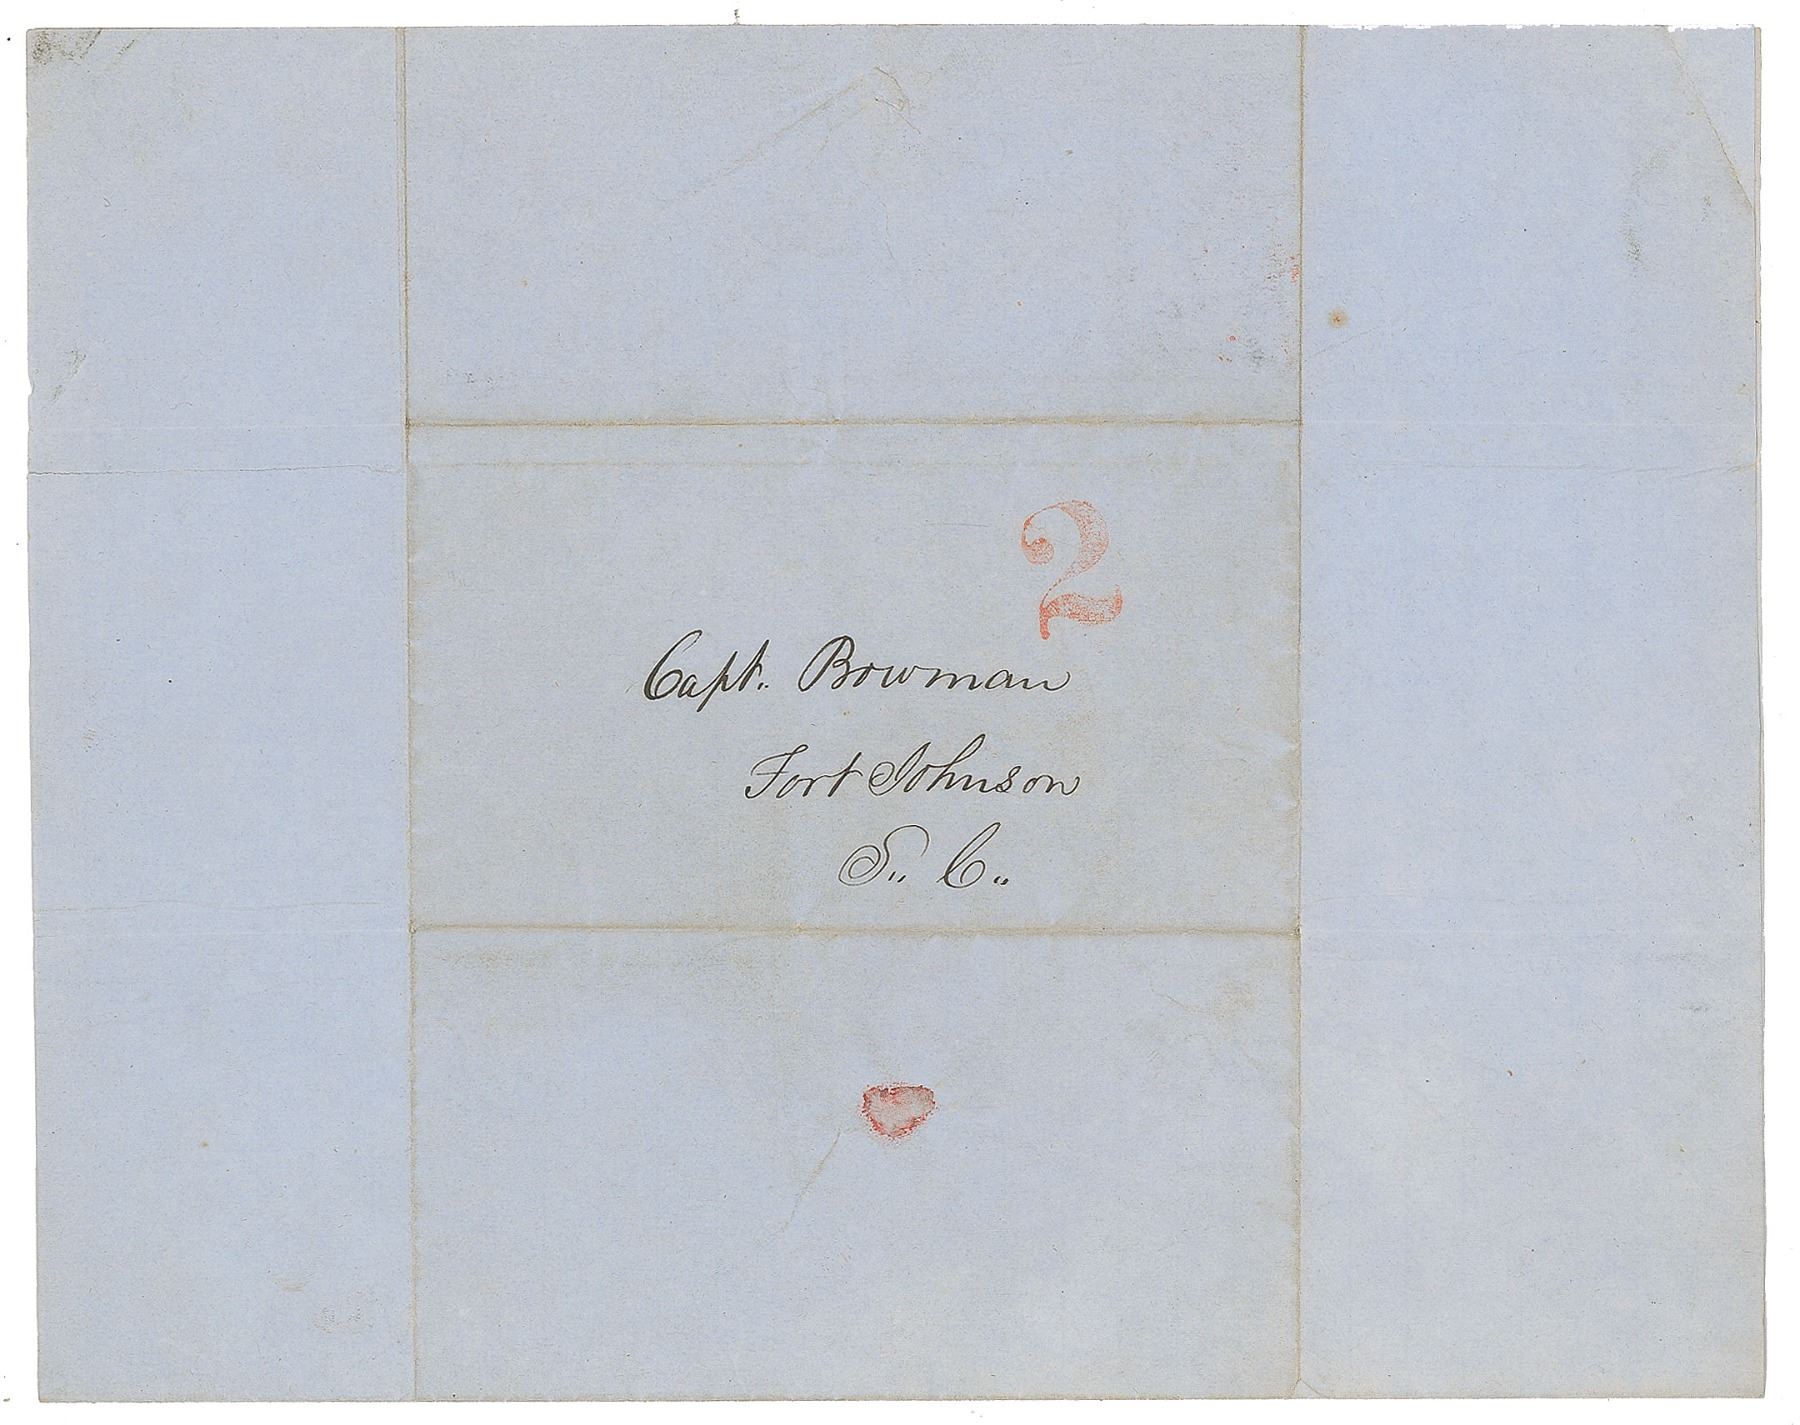 2
Capt. Bowman
Fort Johnson
S. C.